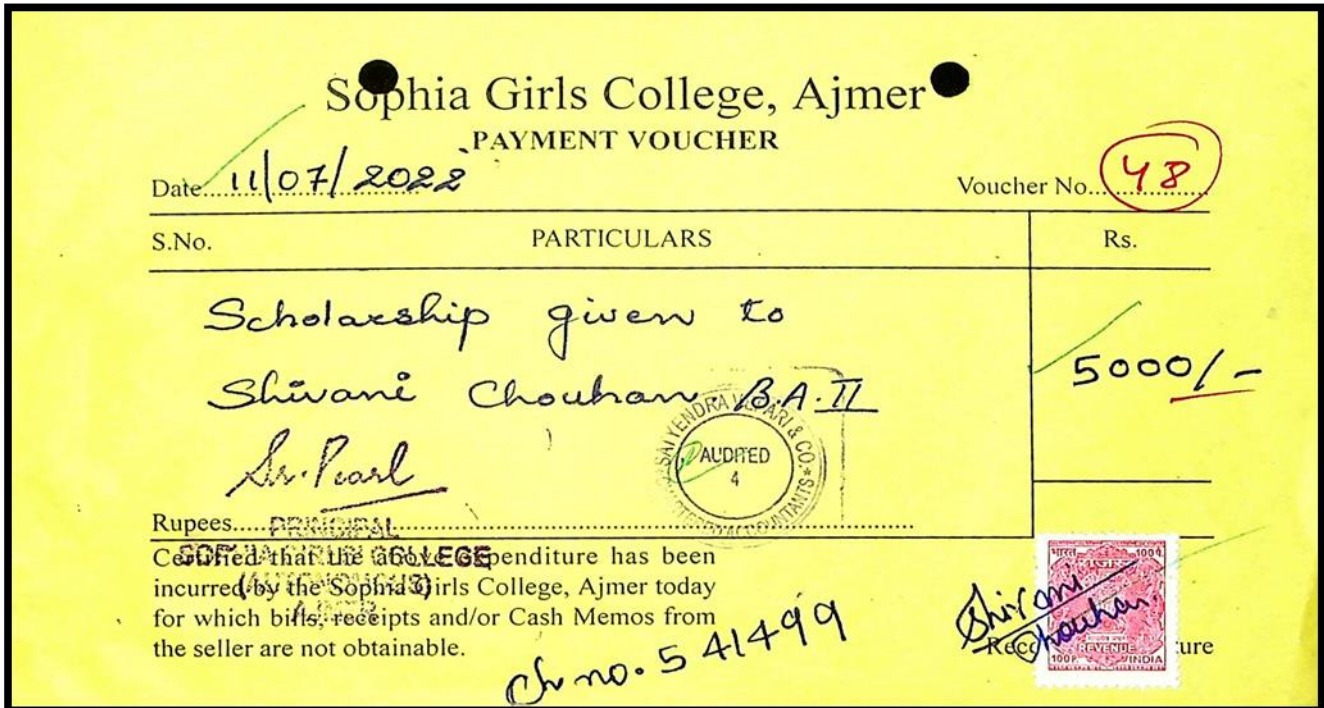 Sophia Girls College, Ajmer
PAYMENT VOUCHER
Date.....11/07/2022 Voucher No.....48
S.No. PARTICULARS Rs.
Scholarship given to
Shivani Chouhan B.A.II 5000/-
Sr. Pearl
SATYENDRA & CO
AUDITED
4
ACCOUNTANTS
Rupees.....
PRINCIPAL
COLLEGE
(AUTONOMOUS)
Certified that the above expenditure has been
incurred by the Sophia Girls College, Ajmer today
for which bills, receipts and/or Cash Memos from
the seller are not obtainable.
Ch no. 541499
Shivani
Chouhan
भारत 100 प.
REVENUE
100P. INDIA